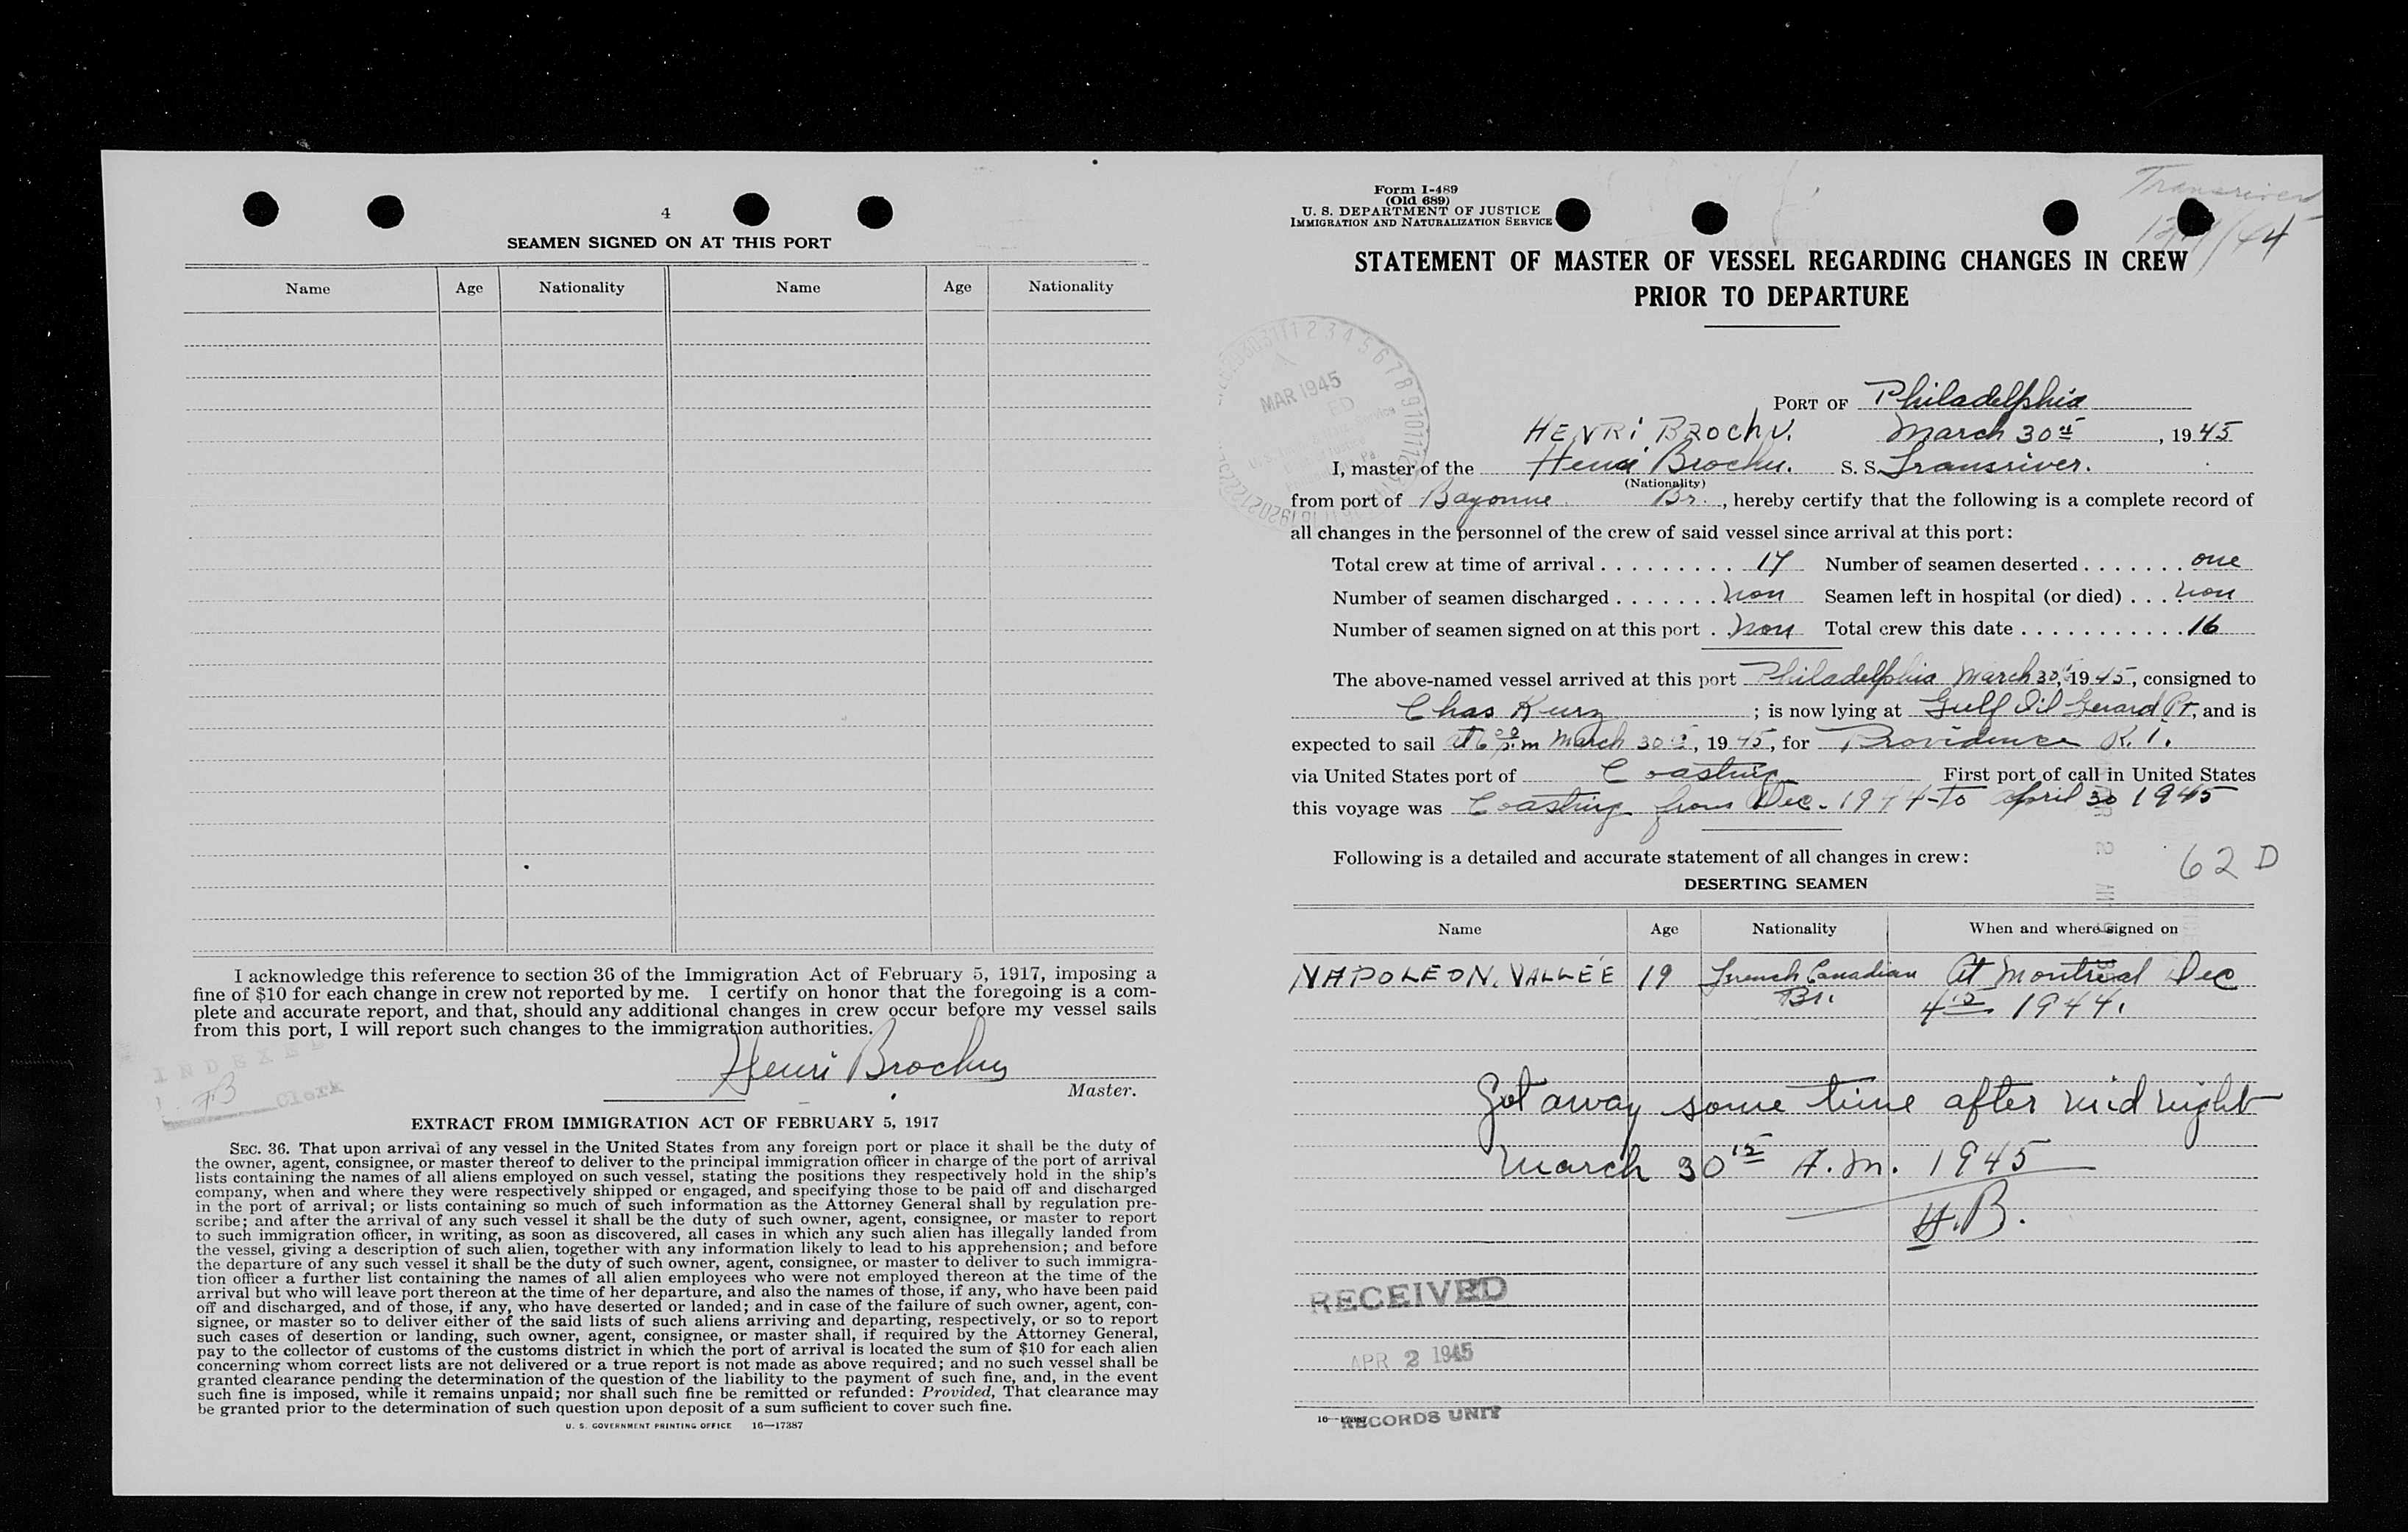 4
SEAMEN SIGNED ON AT THIS PORT
Name Age Nationality Name Age Nationality
I acknowledge this reference to section 36 of the Immigration Act of February 5, 1917, imposing a
fine of $10 for each change in crew not reported by me. I certify on honor that the foregoing is a com-
plete and accurate report, and that, should any additional changes in crew occur before my vessel sails
from this port, I will report such changes to the immigration authorities.
Henri Brochu
Master.
INDEXED
Clerk
EXTRACT FROM IMMIGRATION ACT OF FEBRUARY 5, 1917
SEC. 36. That upon arrival of any vessel in the United States from any foreign port or place it shall be the duty of
the owner, agent, consignee, or master thereof to deliver to the principal immigration officer in charge of the port of arrival
lists containing the names of all aliens employed on such vessel, stating the positions they respectively hold in the ship's
company, when and where they were respectively shipped or engaged, and specifying those to be paid off and discharged
in the port of arrival; or lists containing so much of such information as the Attorney General shall by regulation pre-
scribe; and after the arrival of any such vessel it shall be the duty of such owner, agent, consignee, or master to report
to such immigration officer, in writing, as soon as discovered, all cases in which any such alien has illegally landed from
the vessel, giving a description of such alien, together with any information likely to lead to his apprehension; and before
the departure of any such vessel it shall be the duty of such owner, agent, consignee, or master to deliver to such immigra-
tion officer a further list containing the names of all alien employees who were not employed thereon at the time of the
arrival but who will leave port thereon at the time of her departure, and also the names of those, if any, who have been paid
off and discharged, and of those, if any, who have deserted or landed; and in case of the failure of such owner, agent, con-
signee, or master so to deliver either of the said lists of such aliens arriving and departing, respectively, or so to report
such cases of desertion or landing, such owner, agent, consignee, or master shall, if required by the Attorney General,
pay to the collector of customs of the customs district in which the port of arrival is located the sum of $10 for each alien
concerning whom correct lists are not delivered or a true report is not made as above required; and no such vessel shall be
granted clearance pending the determination of the question of the liability to the payment of such fine, and, in the event
such fine is imposed, while it remains unpaid; nor shall such fine be remitted or refunded: Provided, That clearance may
be granted prior to the determination of such question upon deposit of a sum sufficient to cover such fine.
U. S. GOVERNMENT PRINTING OFFICE 16—17387
Form I-489
(Old 689)
U. S. DEPARTMENT OF JUSTICE
IMMIGRATION AND NATURALIZATION SERVICE
Transriver
STATEMENT OF MASTER OF VESSEL REGARDING CHANGES IN CREW
PRIOR TO DEPARTURE
MAR 1945
PORT OF Philadelphia
HENRI BROCHU. March 30th, 1945
I, master of the Henri Brochu. S. S. Transriver.
(Nationality)
from port of Bayonne Br., hereby certify that the following is a complete record of
all changes in the personnel of the crew of said vessel since arrival at this port:
Total crew at time of arrival . . . . . . . . . . 17 Number of seamen deserted . . . . . . . one
Number of seamen discharged . . . . . . . non Seamen left in hospital (or died) . . . non
Number of seamen signed on at this port . non Total crew this date . . . . . . . . . . . 16
The above-named vessel arrived at this port Philadelphia March 30, 1945, consigned to
Chas Kurz ; is now lying at Gulf Oil Gerard Pt, and is
expected to sail at 6 00 p.m March 30th, 1945, for Providence R. I.
via United States port of Coasting First port of call in United States
this voyage was Coasting from Dec. 1944 to April 30 1945
Following is a detailed and accurate statement of all changes in crew:
62 D
DESERTING SEAMEN
Name Age Nationality When and where signed on
NAPOLEON. VALLÉE 19 French Canadian At Montreal Dec
Br. 4th 1944.
Got away some time after mid night
March 30th A.M. 1945
H.B.
RECEIVED
APR 2 1945
RECORDS UNIT